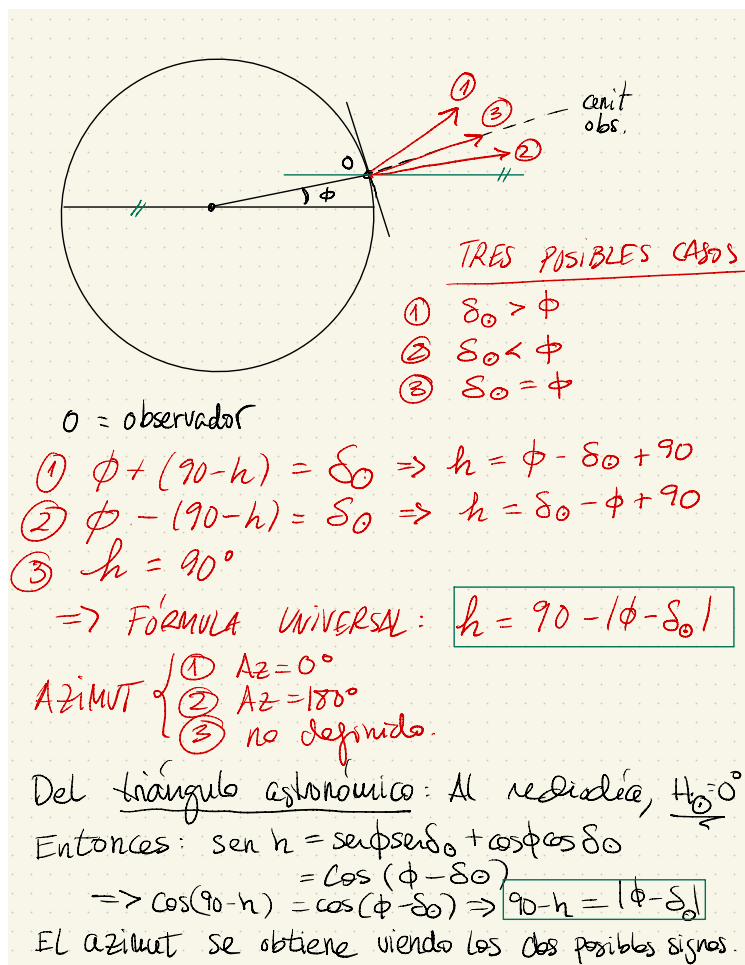 ①
③
②
cenit
obs.
O
ϕ
TRES POSIBLES CASOS
① δ⊙ > ϕ
② δ⊙ < ϕ
③ δ⊙ = ϕ
O = observador
① ϕ + (90-h) = δ⊙ => h = ϕ - δ⊙ + 90
② ϕ - (90-h) = δ⊙ => h = δ⊙ - ϕ + 90
③ h = 90°
=> FÓRMULA UNIVERSAL: h = 90 - |ϕ - δ⊙|
AZIMUT { ① Az=0°
② Az=180°
③ no definido.
Del triángulo astronómico: Al mediodía, H⊙=0°
Entonces: sen h = senϕ senδ⊙ + cosϕ cos δ⊙
= cos (ϕ - δ⊙)
=> cos(90-h) = cos(ϕ-δ⊙) => 90-h = |ϕ-δ⊙|
El azimut se obtiene viendo los dos posibles signos.